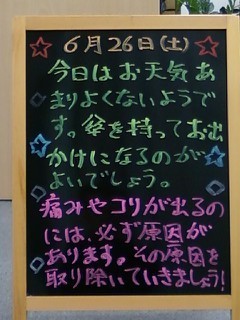 6月26日(土)
今日はお天気あ
まりよくないようで
す。傘を持ってお出
かけになるのが
よいでしょう。
痛みやコリが出るの
には、必ず原因が
あります。その原因を
取り除いていきましょう!